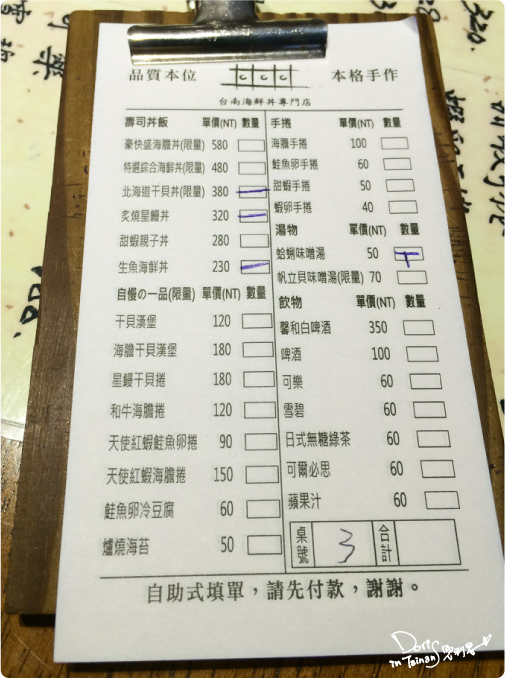 品質本位 本格手作
台南海鮮丼專門店
壽司丼飯 單價(NT) 數量
豪快盛海膽丼(限量) 580
特選綜合海鮮丼(限量) 480
北海道干貝丼(限量) 380 一
炙燒星鰻丼 320 一
甜蝦親子丼 280
生魚海鮮丼 230 一
自慢の一品(限量) 單價(NT) 數量
干貝漢堡 120
海膽干貝漢堡 180
星鰻干貝捲 180
和牛海膽捲 120
天使紅蝦鮭魚卵捲 90
天使紅蝦海膽捲 150
鮭魚卵冷豆腐 60
爐燒海苔 50
手捲 單價(NT) 數量
海膽手捲 100
鮭魚卵手捲 60
甜蝦手捲 50
蝦卵手捲 40
湯物 單價(NT) 數量
蛤蜊味噌湯 50 T
帆立貝味噌湯(限量) 70
飲物 單價(NT) 數量
馨和白啤酒 350
啤酒 100
可樂 60
雪碧 60
日式無糖綠茶 60
可爾必思 60
蘋果汁 60
桌號 3 合計
自助式填單，請先付款，謝謝。
Doris
in Tainan